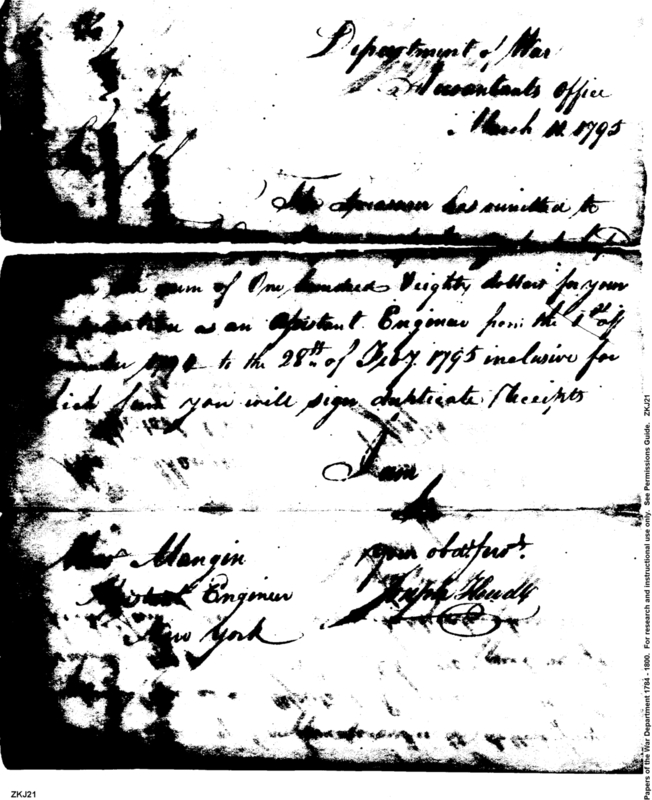 Department of War
Accountants office
March 11. 1795
The Treasurer has remitted to
sum of One hundred & eighty dollars for your
as an Assistant Engineer from the 1st of
1794 to the 28th of Feby. 1795 inclusive for
you will sign duplicate Receipts
I am
Sir
your obdt. servt.
Mangin
Joseph Howell
Assistant Engineer
New York
Papers of the War Department 1784 - 1800. For research and instructional use only. See Permissions Guide. ZKJ21
ZKJ21